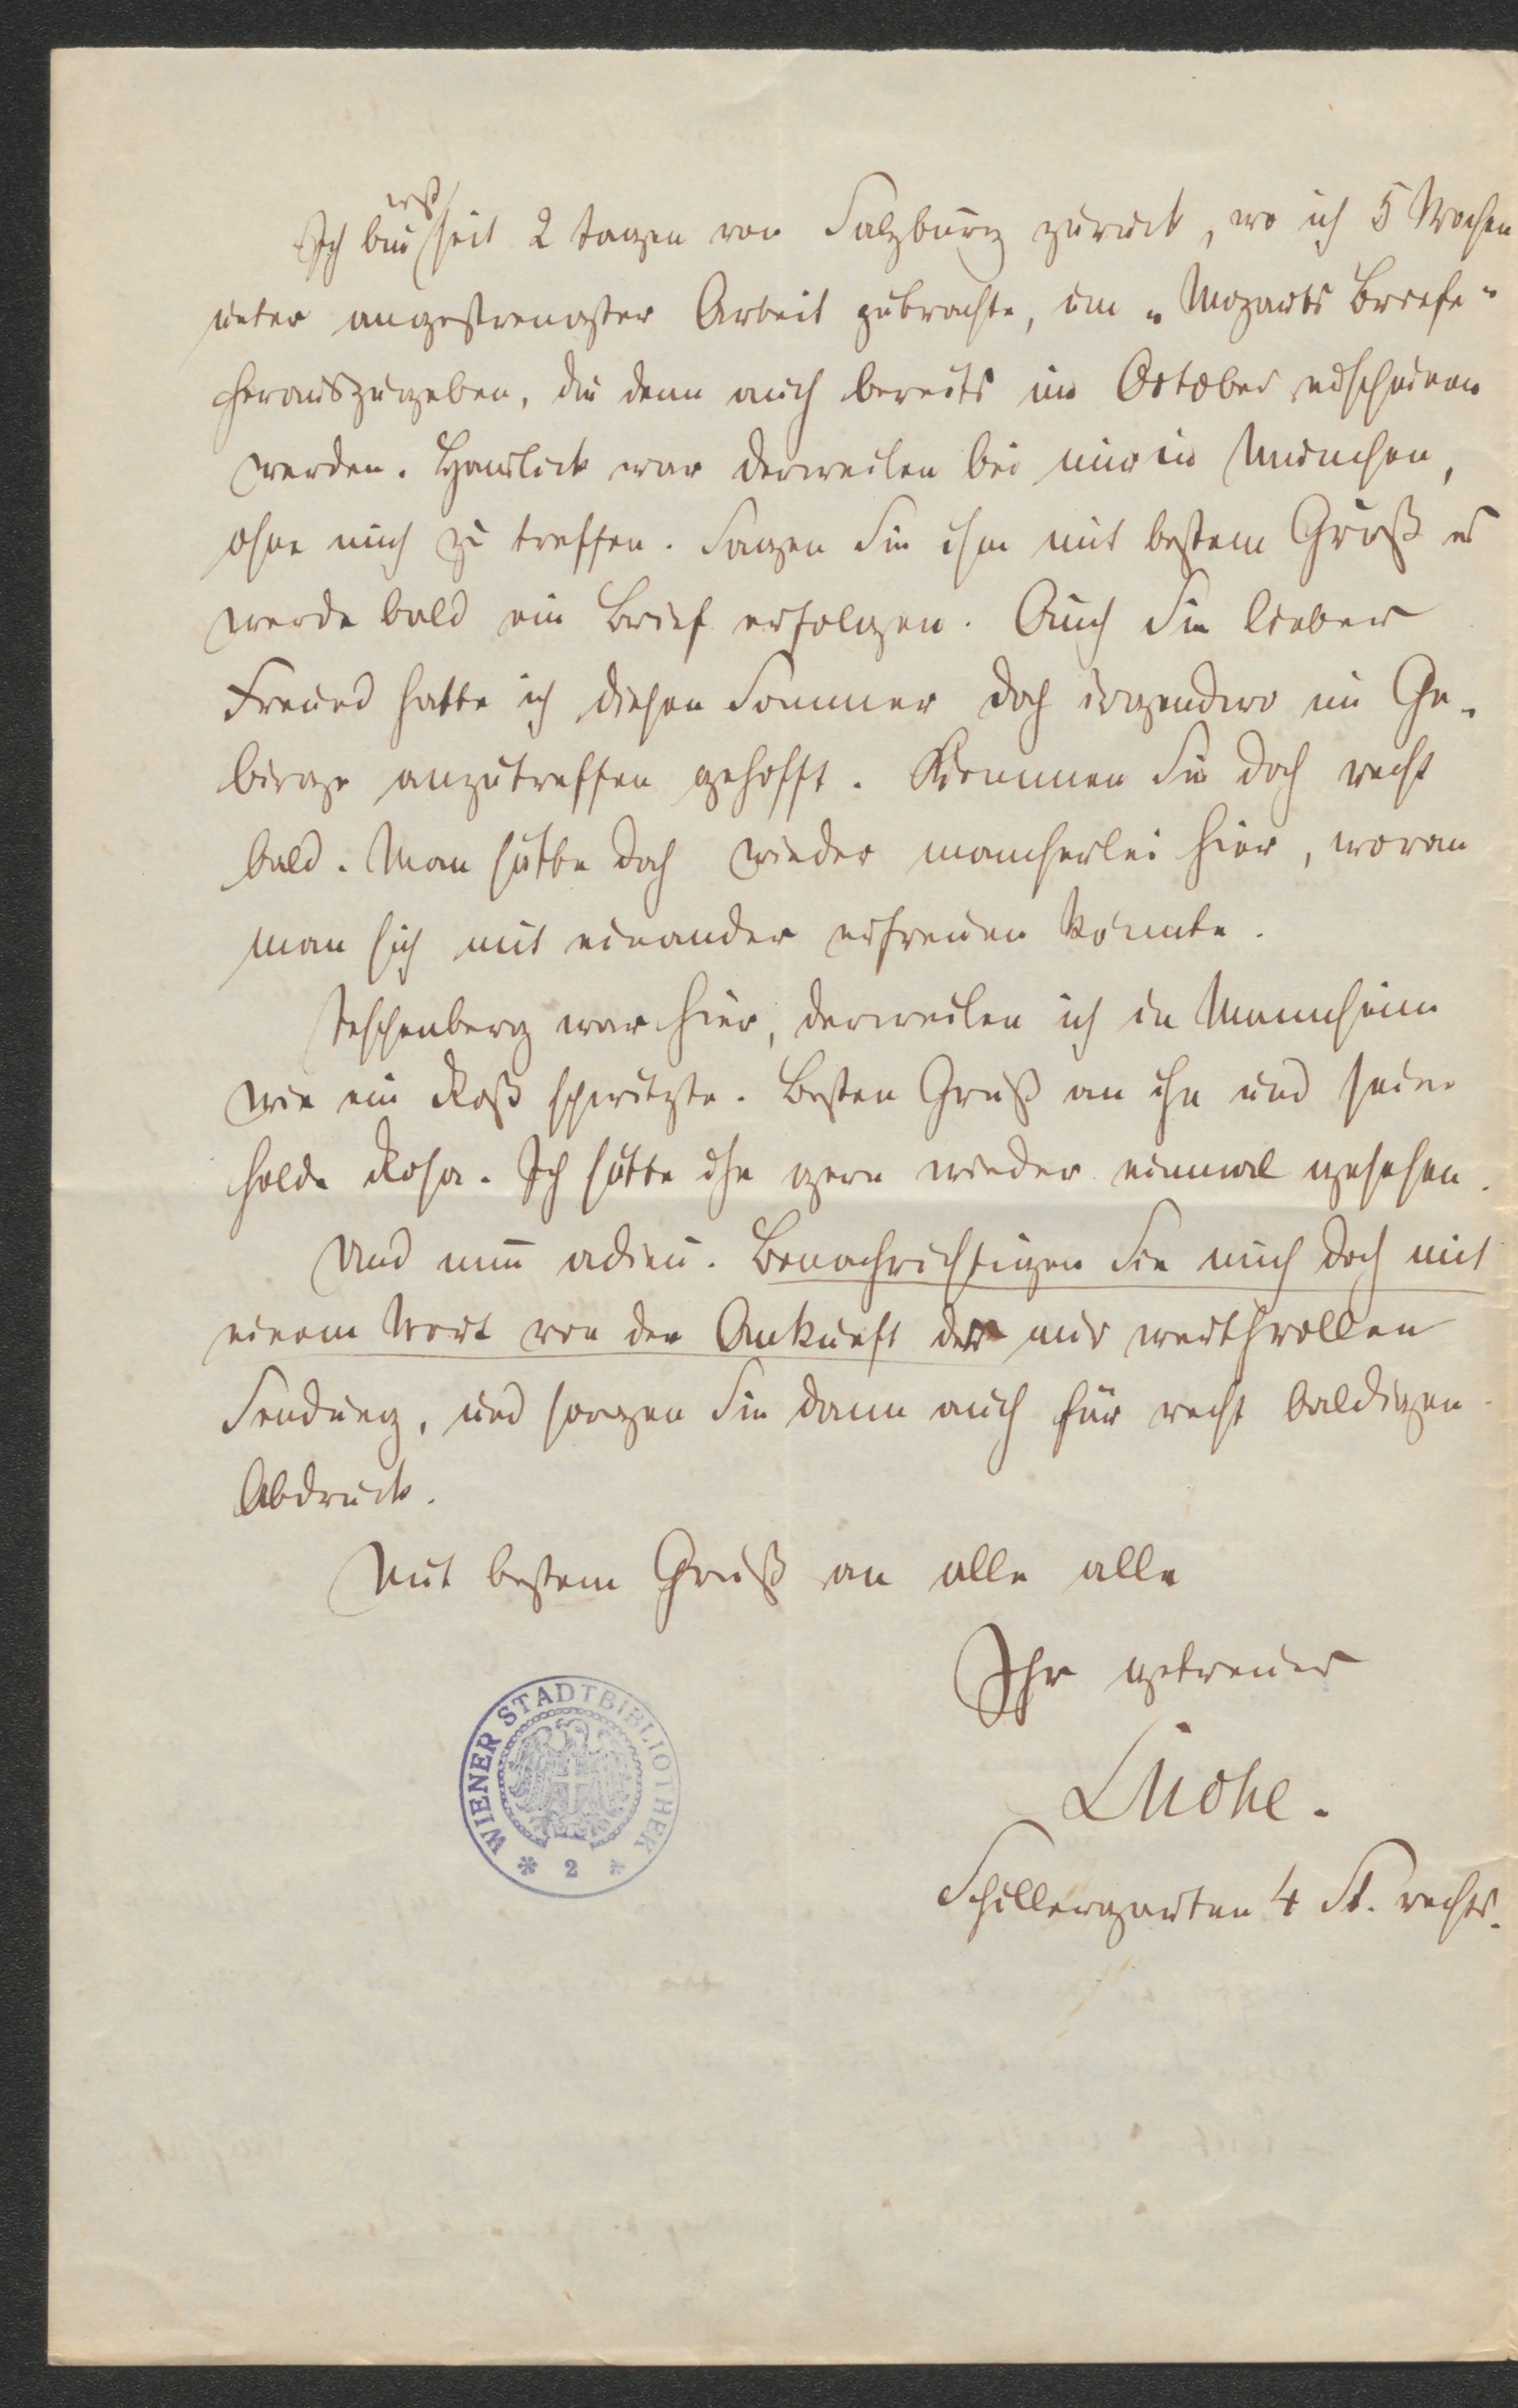 Ich bin erst seit 2 Tagen von Salzburg zurück, wo ich 5 Wochen
unter angestrengster Arbeit zubrachte, um „Mozarts Briefe“
herauszugeben, die denn auch bereits im October erscheinen
werden. Hanslick war derweilen bei mir in München,
ohne mich zu treffen. Sagen Sie ihm mit bestem Gruß es
werde bald ein Brief erfolgen. Auch Sie lieber
Freund hatte ich diesen Sommer doch irgendwo im Ge-
birge anzutreffen gehofft. Kommen Sie doch recht
bald. Man hätte doch wieder mancherlei hier, woran
man sich mit einander erfreuen könnte.
Teschenberg war hier, derweilen ich in Mannheim
wie ein Roß schwitzte. Besten Gruß an ihn und seine
holde Rosa. Ich hätte ihn gern wieder einmal gesehen.
Und nun adieu. Benachrichtigen Sie mich doch mit
einem Wort von der Ankunft der mir werthvollen
Sendung, und sorgen Sie dann auch für recht baldigen
Abdruck.
Mit bestem Gruß an alle alle
Ihr getreuer
LNohl.
Schillergarten 4 St. rechts.
WIENER STADTBIBLIOTHEK
* 2 *